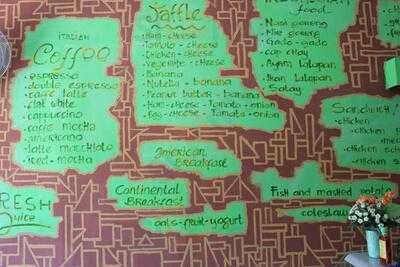 ITALIAN
Coffee
espresso
double espresso
caffe latte
flat white
cappuccino
caffe mocha
americano
latte macchiato
iced - mocha
Jaffle
Ham - cheese
Tomato - cheese
Chicken - cheese
vegetable - cheese
Banana
Nutella - banana
Peanut butter - banana
Ham - cheese - Tomato - onion
Egg - cheese - Tomato - onion
food
Nasi goreng
Mie goreng
Gado - gado
Cap cay
Ayam Lalapan
Ikan Lalapan
Satay
SANDWICH
chicken
chicken
chicken
chicken
American
Breakfast
Continental
Breakfast
oats - fruit - yogurt
Fish and mashed potato
coleslaw
FRESH
Juice